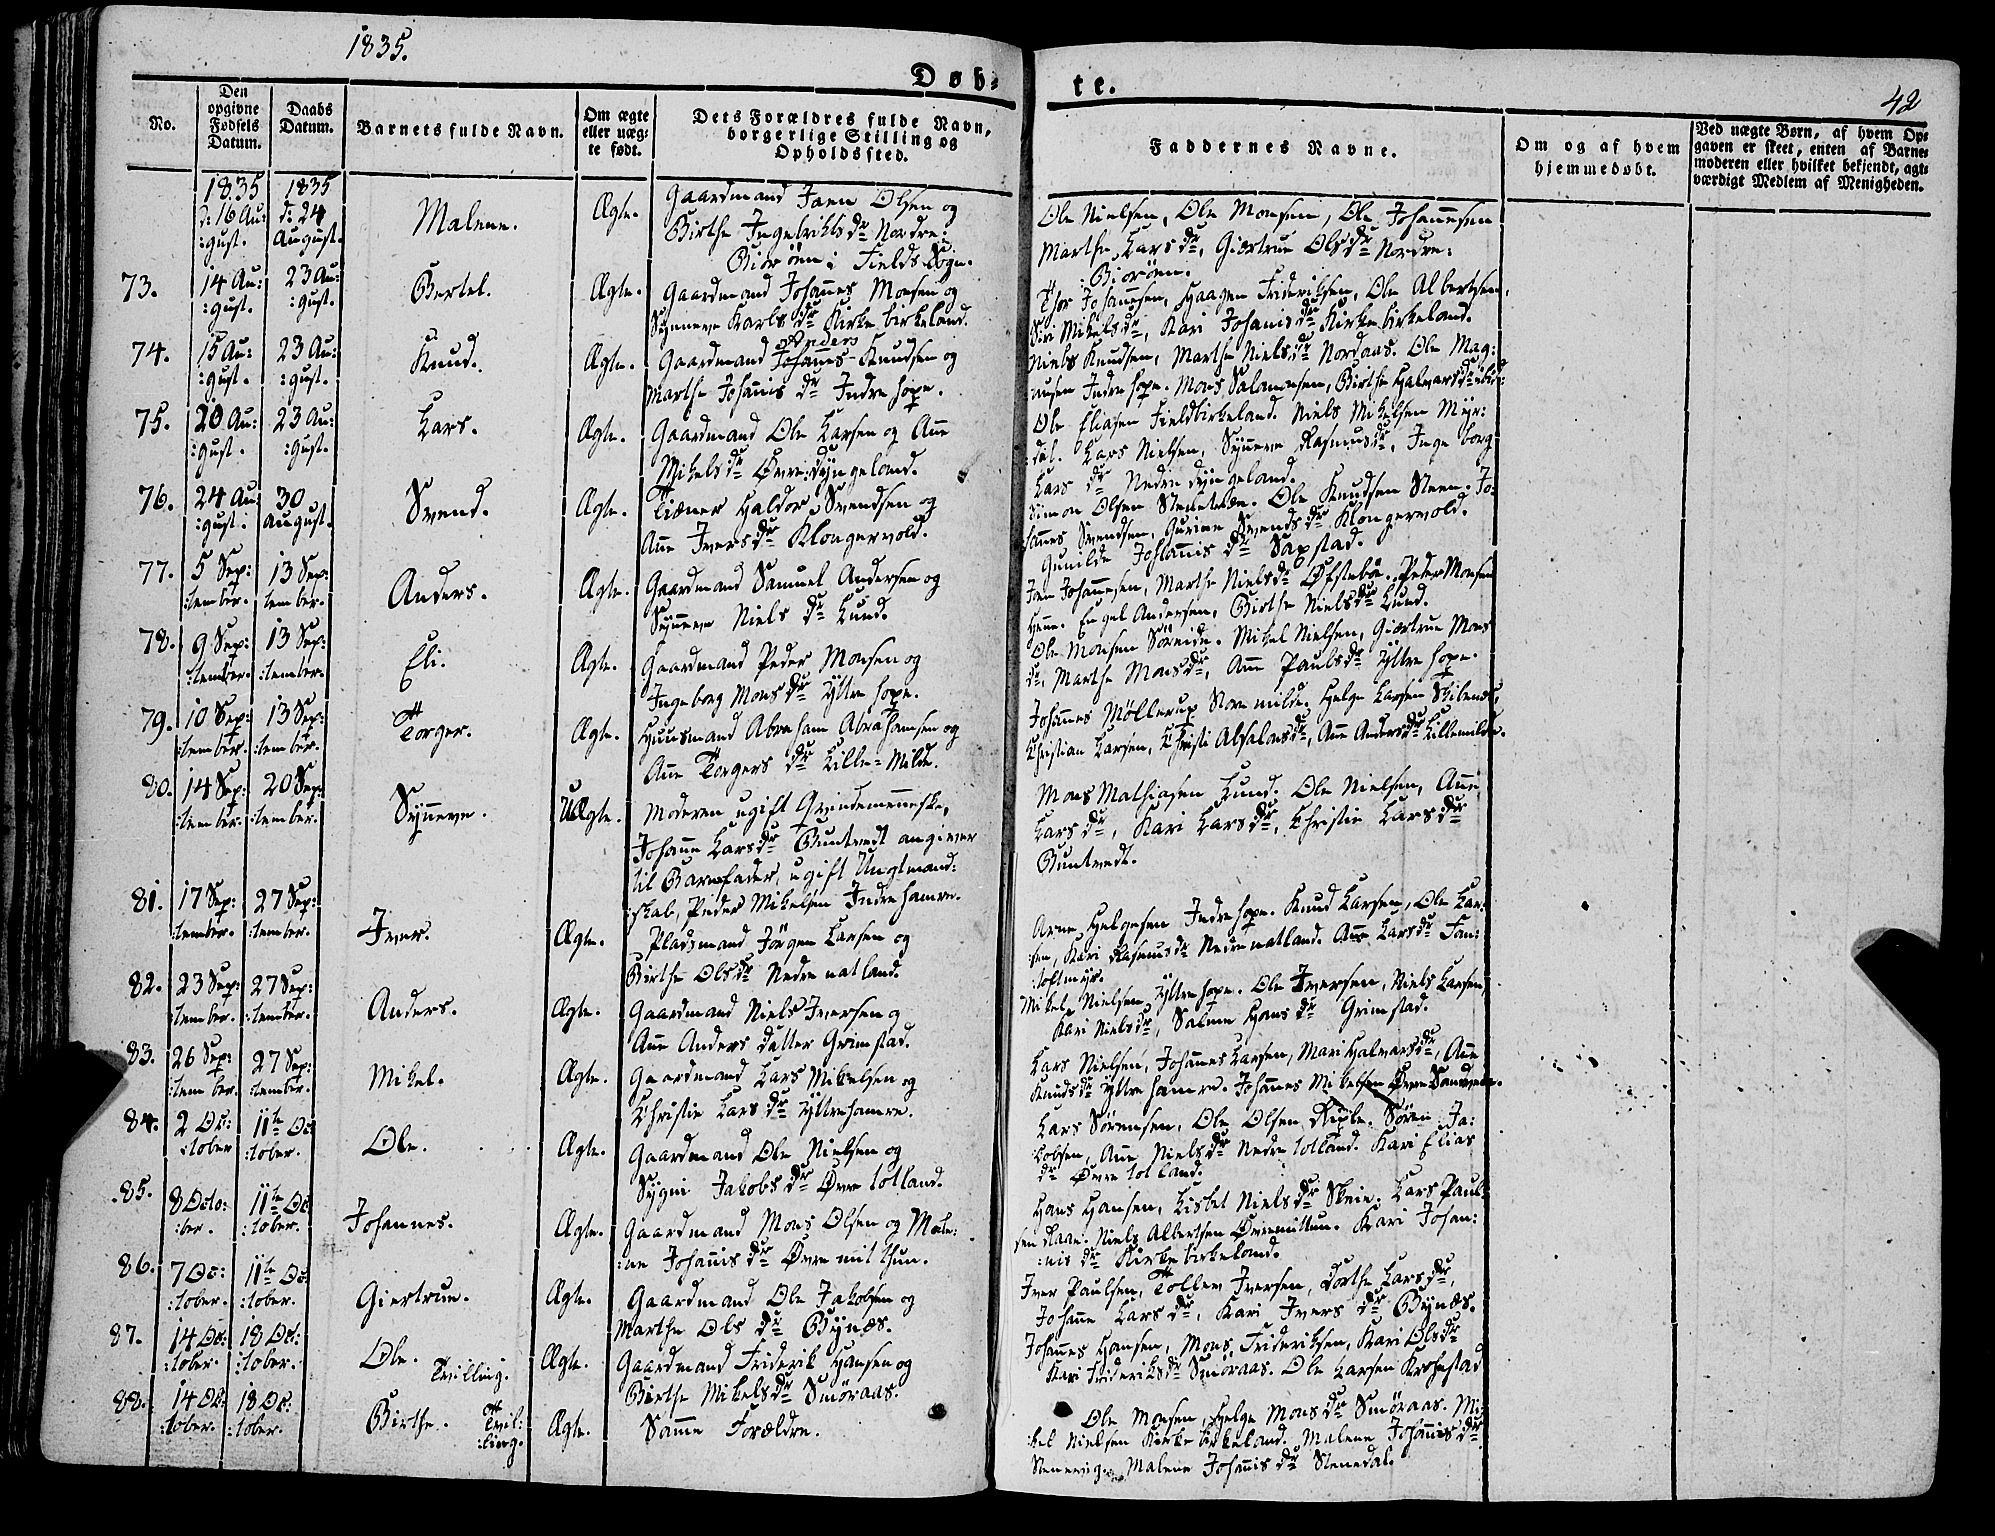 1835.
Døb-
te.
42
No.
Den opgivne Fødsels Datum.
Daabs Datum.
Barnets fulde Navn.
Om ægte eller uæg- te født.
Dets Forældres fulde Navn, borgerlige Stilling og Opholdssted.
Faddernes Navne.
Om og af hvem hjemmedøbt.
Ved uægte Børn, af hvem Op- gaven er skeet, enten af Barne- moderen eller hvilket bekjendt, agt- værdigt Medlem af Menigheden.
1835 d: 16 Au: :gust.
1835 d: 24 August.
Malene.
Ægte.
Gaardmand Jaen Olsen og
Birthe Ingebrikts dr Nordre:
Biørøen i Fields Sogn.
Ole Nielsen, Ole Monsen, Ole Johannesen
Marthe Lars dr, Giertrue Ols dr Nordre:
Biørøen.
73.
14 Au: :gust.
23 Au: :gust.
Bertel.
Ægte.
Gaardmand Johannes Monsen og
Synneve Karls dr Kirkebirkeland.
Thor Johannesen, Haagen Friderichsen, Ole Albertsen,
Siri Mikels dr, Kari Johanis dr Kirkebirkeland.
74.
15 Au: :gust.
23 Au: :gust.
Knud.
Ægte.
Anders
Gaardmand Johannes Knudsen og
Marthe Johanis dr Indre hope.
Niels Knudsen, Marthe Niels dr Nordaas. Ole Mag:
:nusen Indre hope. Mons Salamonsen, Birthe Halvars dr
75.
20 Au: :gust.
23 Au: :gust.
Lars.
Ægte.
Gaardmand Ole Larsen og Ane
Mikels dr Øvre dyngeland.
Ole Eliasen Fieldbirkeland. Niels Mikelsen Myr:
:dal. Lars Nielsen, Synneve Rasmus dr, Inge borg
Lars dr Nedre dyngeland.
76.
24 Au: :gust.
30 August.
Svend.
Ægte.
Tiener Haldor Svendsen og
Ane Ivers dr Klongervold.
Simon Olsen Stenetræe. Ole Knudsen Steen. Jo-
hannes Svendsen, Gurine Svends dr Klongervold.
Gunilde Johanis dr Saxstad.
77.
5 Sep: :tember.
13 Sep: tember.
Anders.
Ægte.
Gaardmand Samuel Andersen og
Synneve Niels dr Lund.
Jaen Johannesen, Marthe Niels dr Øfstebøe. Peder Monsen
Hanne. Engel Andersen, Birthe Niels dr Lund.
78.
9 Sep: :tember.
13 Sep: :tember.
Eli.
Ægte.
Gaardmand Peder Monsen og
Ingeborg Mons dr Yttre hope.
Ole Monsen Søreide. Mikel Nielsen, Giertrue Mons
dr, Marthe Mons dr, Ane Pauls dr Yttre hope.
79.
10 Sep: :tember.
13 Sep: :tember.
Torger.
Ægte.
Huusmand Abraham Abrahamsen og
Ane Torgers dr Lille-Milde.
Johannes Møllerup Storemilde. Helge Larsen Skibenes,
Christian Larsen, Christi Absalons dr, Ane Anders dr Lillemilde.
80.
14 Sep: :tember.
20 Sep: :tember.
Synneve.
UÆgte.
Moderen ugift Qvindemenneske,
Johanne Lars dr Buntvedt angiver
til Barnefader, ugift Ungtmand:
:skab, Peder Mikelsen Indre hamre.
Mons Mathiasen Lund. Ole Nielsen, Ane
Lars dr, Kari Lars dr, Christie Lars dr
Buntvedt.
81.
17 Sep: :tember.
27 Sep: :tember.
Iver.
Ægte.
Pladsmand Jørgen Larsen og
Birthe Ols dr Nedre natland.
Arne Helgesen Indre hope. Knud Larsen, Ole Lar:
:sen, Kari Rasmus dr Nedre natland. Ane Lars dr Fan:
:toftmyr.
82.
23 Sep: :tember.
27 Sep: :tember.
Anders.
Ægte.
Gaardmand Niels Iversen og
Ane Anders datter Grimstad.
Mikel Nielsen Yttre hope. Ole Iversen, Niels Larsen,
Kari Niels dr, Salme Hans dr Grimstad.
83.
26 Sep: :tember.
27 Sep: :tember.
Mikel.
Ægte.
Gaardmand Lars Mikelsen og
Christie Lars dr Yttrehamre.
Lars Nielsen, Johannes Larsen, Mari Halvars dr, Ane
Knuds dr Yttre hamre. Johannes Mikelsen Øvre Sandvede.
84.
2 Oc: :tober
11te Oc: :tober.
Ole.
Ægte.
Gaardmand Ole Nielsen og
Sygni Jakobs dr Øvre totland.
Lars Sørensen, Ole Olsen Riple. Søren Ja:
:kobsen, Ane Niels dr Nedre totland. Kari Elias
dr Øvre totland.
85.
8 Octo: :ber.
11te Oc :tober.
Johannes.
Ægte.
Gaardmand Mons Olsen og Male:
:ne Johanis dr Øvre mitthun.
Hans Hansen, Lisbet Niels dr Skeie. Lars Paul-
sen Raae. Niels Albertsen Øvremittun. Kari Johan:
:nis dr Kirkebirkeland.
86.
7 Oc: :tober.
11te Oc: :tober.
Giertrue.
Ægte.
Gaardmand Ole Jakobsen og
Marthe Ols dr Bynæs.
Iver Paulsen, Tollev Iversen, Dorthe Lars dr,
Johanne Lars dr, Kari Ivers dr Bynæs.
87.
14 Oc: :tober.
18 Oc: :tober.
Ole. Tvilling.
Ægte.
Gaardmand Friderik Hansen og
Birthe Mikels dr Smøraas.
Johannes Hansen, Mons Frideriksen, Kari Ols dr
Kari Frideriks dr Smøraas. Ole Larsen Krohnstad
88.
14 Oc: :tober.
18 Oc: :tober.
Birthe. Tvil: :ling.
Ægte.
Samme Forældre.
Ole Monsen, Helge Mons dr Smøraas. Mi-
:kel Nielsen Kirkebirkeland. Malene Johanis dr
Stenevig. Malene Johanis dr Stenedal.